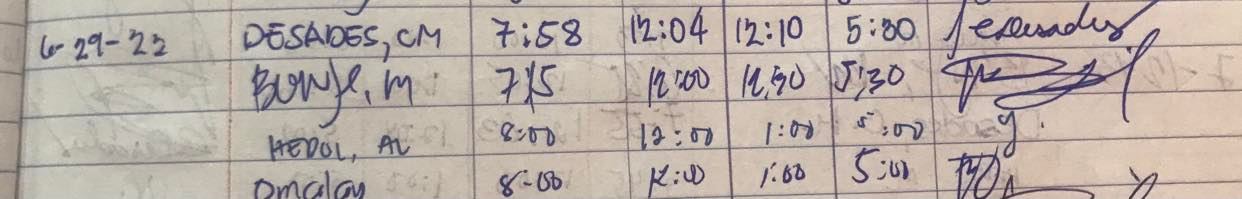 6-29-22 DESADES, CM 7:58 12:04 12:10 5:30
M 7:15 12:00 12:30 5:30
HEDOL, AL 8:00 12:00 1:00 5:00
Omalay 8:00 12:00 1:00 5:00